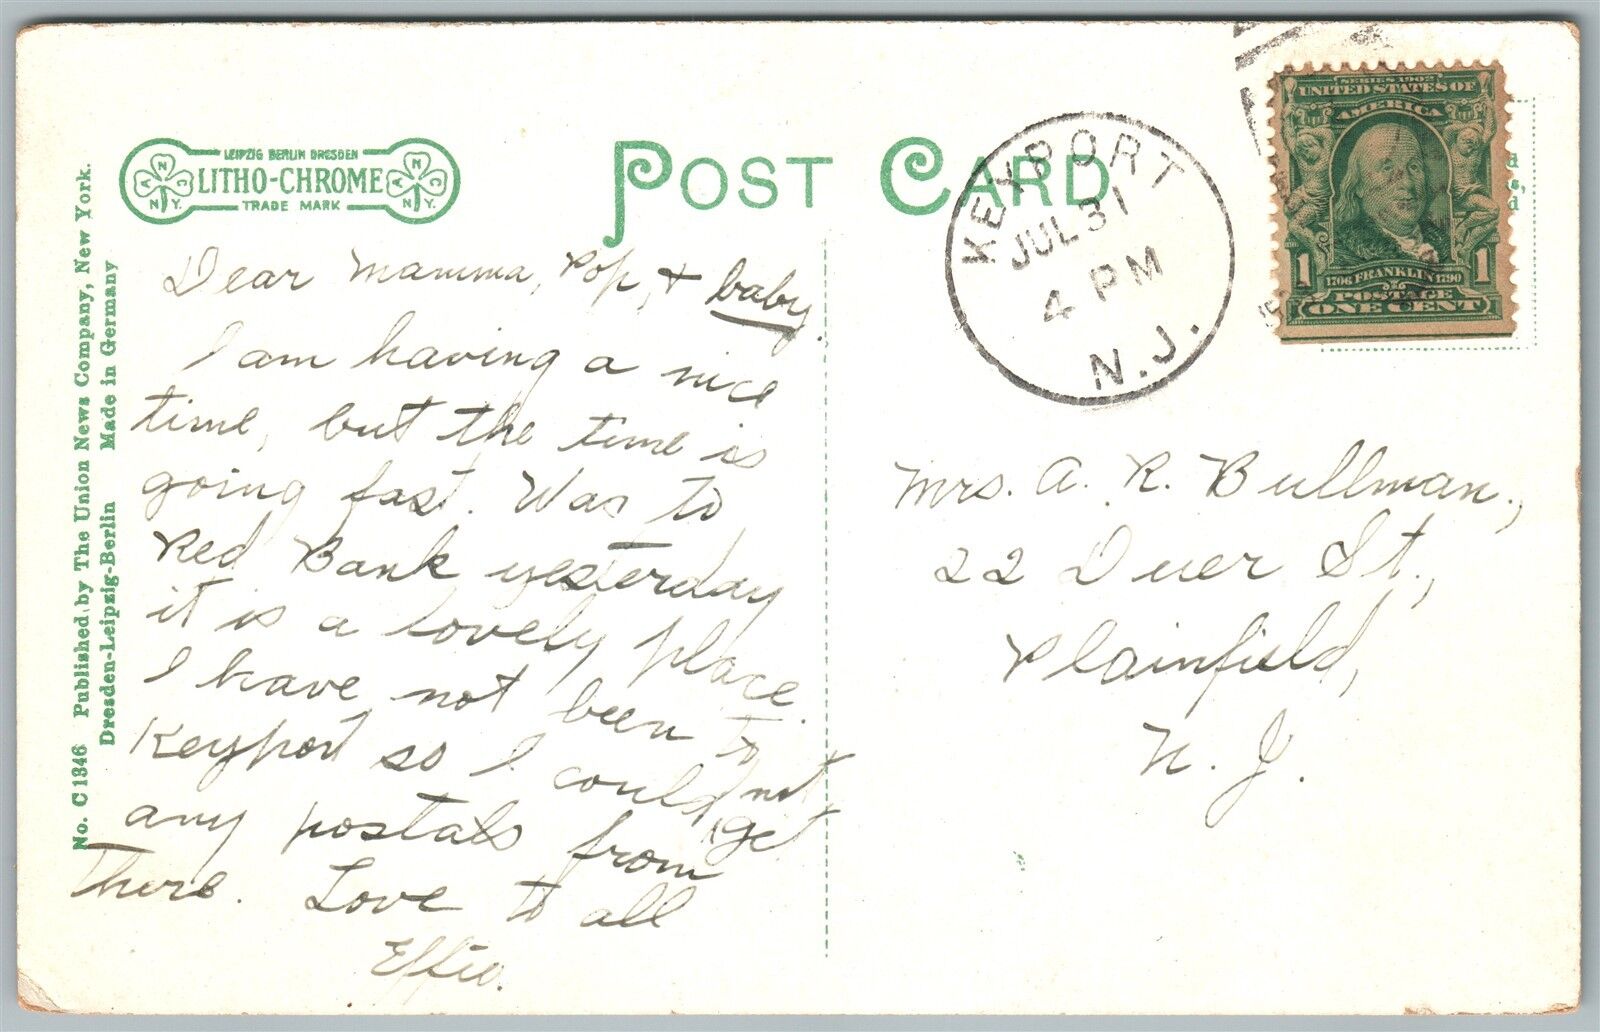 LEIPZIG BERLIN DRESDEN
LITHO-CHROME
TRADE MARK
A N C
N.Y.
A N C
N.Y.
POST CARD
No. C1346 Published by The Union News Company, New York.
Dresden-Leipzig-Berlin Made in Germany
Dear Mamma, Pop, + baby.
I am having a nice
time, but the time is
going fast. Was to
Red Bank yesterday
it is a lovely place.
I have not been to
Keyport so I could not
any postals from get
there. Love to all
Effie.
KEYPORT
JUL 31
4 PM
N.J.
SERIES 1902
UNITED STATES OF
AMERICA
1 FRANKLIN 1
1706 1790
POSTAGE
ONE CENT
Mrs. A. R. Bullman.,
22 Duer St.,
Plainfield,
N. J.